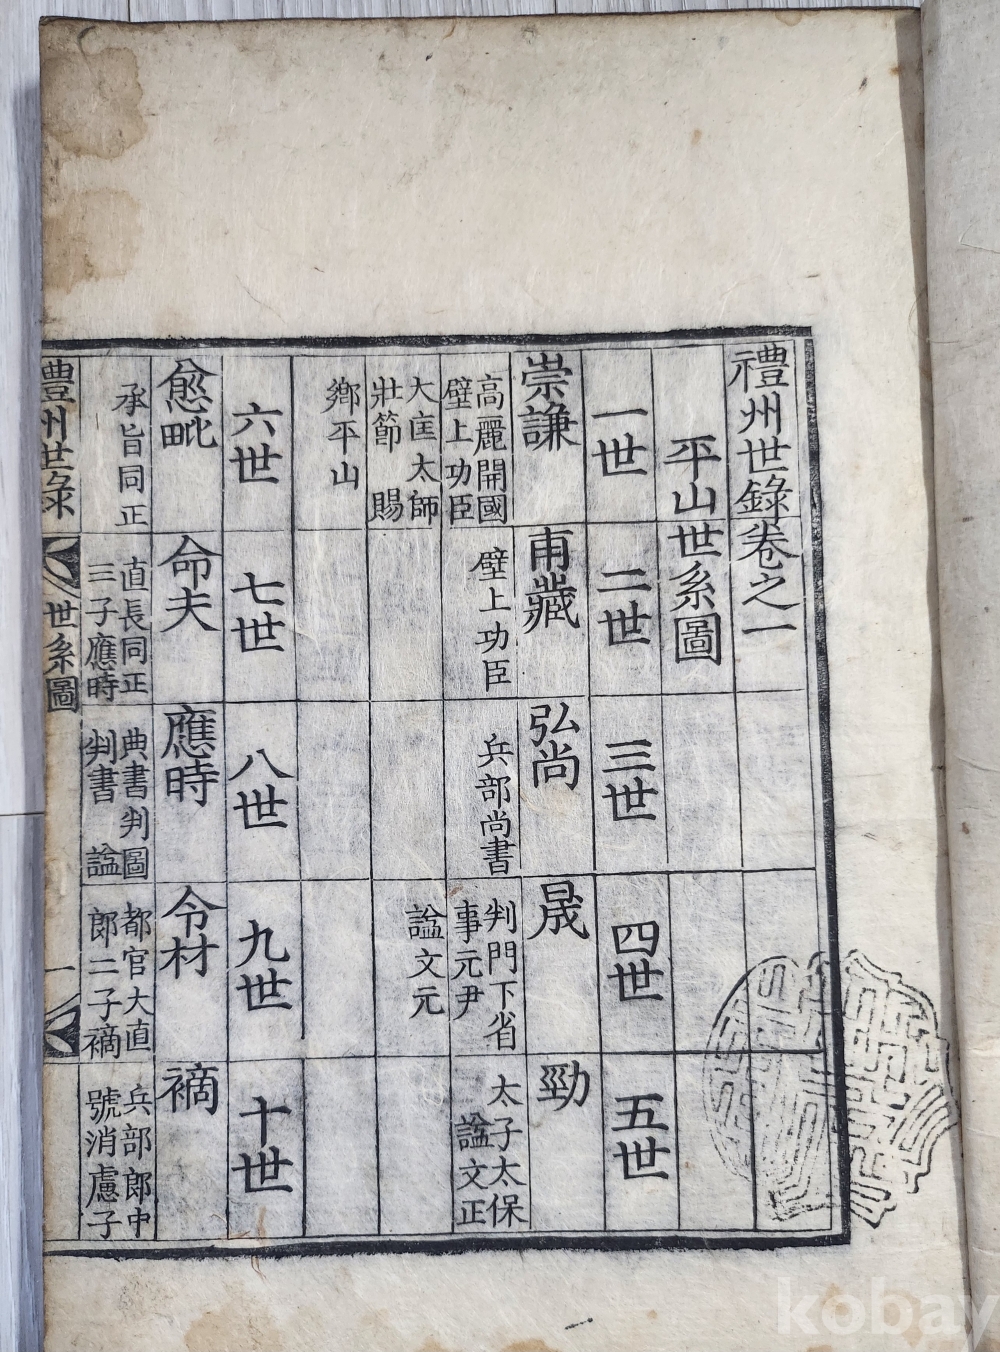 禮州世錄卷之一
平山世系圖
一世
二世
三世
四世
五世
崇謙
高麗開國
壁上功臣
大匡太師
壯節 賜
鄕平山
甫藏
壁上功臣
弘尚
兵部尚書
晟
判門下省
事元尹
諡文元
勁
太子太保
諡文正
六世
七世
八世
九世
十世
愈毗
承旨同正
命夫
直長同正
三子應時
應時
典書判圖
判書 諡
令材
都官大直
郞二子禘
禘
兵部郞中
號消慮子
禮州世錄
世系圖
一
kobay